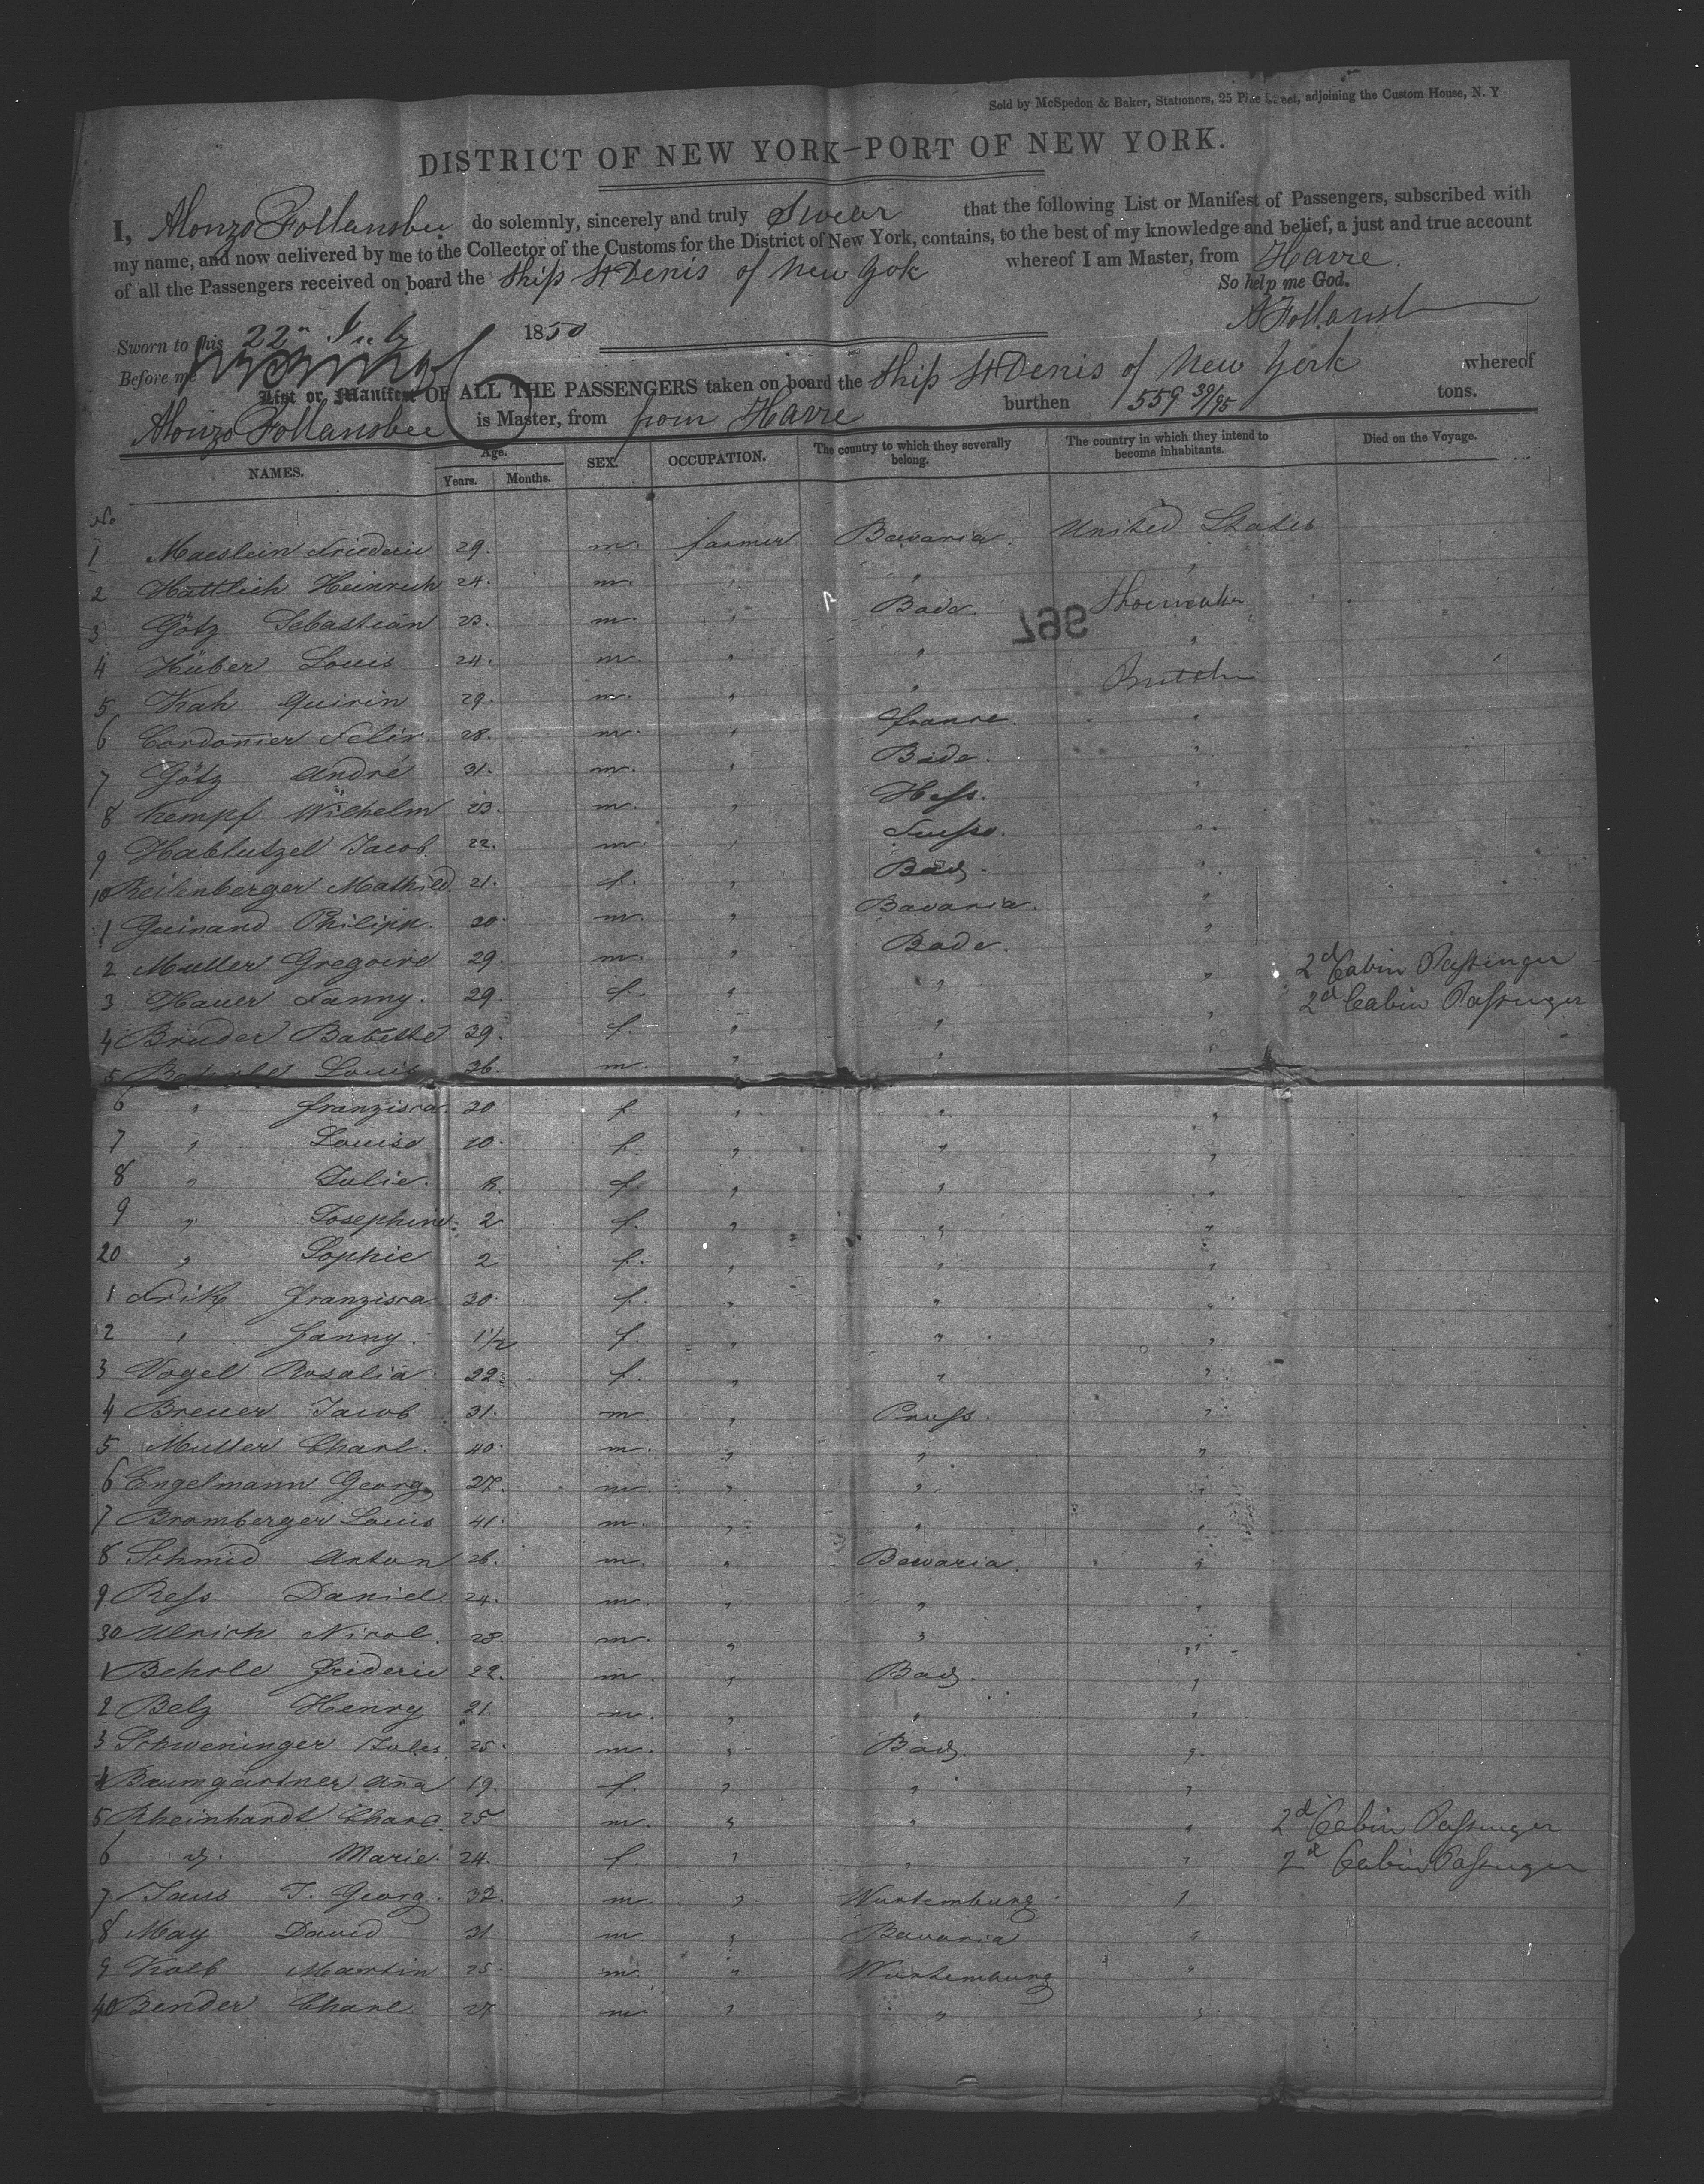 Sold by McSpedon & Baker, Stationers, 25 Pine Street, adjoining the Custom House, N. Y
DISTRICT OF NEW YORK—PORT OF NEW YORK.
I, Alonzo Follansbee do solemnly, sincerely and truly Swear that the following List or Manifest of Passengers, subscribed with
my name, and now delivered by me to the Collector of the Customs for the District of New York, contains, to the best of my knowledge and belief, a just and true account
of all the Passengers received on board the Ship St Denis of New Yok whereof I am Master, from Havre.
So help me God.
Sworn to this 22n July 1850
Before me
List or Manifest OF ALL THE PASSENGERS taken on board the Ship St Denis of New York whereof
Alonzo Follansbee is Master, from from Havre burthen 559 39/95 tons.
NAMES. Age. Years. Months. SEX. OCCUPATION. The country to which they severally belong. The country in which they intend to become inhabitants. Died on the Voyage.
No
1 Maeslein Friederic 29. m. farmer Bavaria. United States
2 Hattlich Heinrich 24. m. " " "
3 Götz Sebastian 23. m. " Bade. Shoemaker
4 Hüber Louis 24. m. " " "
5 Kah Quirin 29. m. " "
6 Cordonnier Felix. 28. m. " france. "
7 Götz André 31. m. " Bade. "
8 Kempf Wilhelm 23. m. " Hess. "
9 Hablutzel Jacob 22. m. " Suisse. "
10 Reilenberger Mathild. 21. f. " Bad. "
1 Guinand Philipp. 20. m. " Bavaria. "
2 Muller Gregoire 29. m. " Bade. "
3 Hauer Fanny. 29. f. " " " 2d Cabin Passenger
4 Bruder Babette 39. f. " " " 2d Cabin Passenger
5 Louis 36. m. " " "
6 " franzisca. 30 f " " "
7 " Louise 10. f. " " "
8 " Julie. f. " " "
9 " Josephine. 2 f. " " "
20 " Sophie 2 f. " " "
1 Frik franzisca 30. f. " " "
2 " fanny. 1 1/2 f. " " "
3 Vogel Rosalia 22. f. " " "
4 Breuer Jacob 31. m. " Pruss. "
5 Muller Charl. 40. m. " " "
6 Engelmann Georg 27. m. " " "
7 Bromberger Louis 41. m. " " "
8 Schmid Anton 26. m. " Bavaria. "
9 Ress Daniel. 24. m. " " "
30 Ulrich Nicol. 28. m. " " "
1 Behrle frideric 22. m. " Bad. "
2 Belz Henry 21. m. " " "
3 Schweninger Jules. 25. m. " Bad. "
4 Baumgartner Anna 19. f. " " "
5 Rheinhardt Charl. 25 m. " " " 2d Cabin Passenger
6 d. Marie. 24. f. " " " 2d Cabin Passenger
7 Jauss J. Georg. 32. m. " Wurtemburg. "
8 May David 31 m " Bavaria "
9 Kolb Martin 25. m. " Wurtemburg "
40 Bender Charl. 27 m " " "